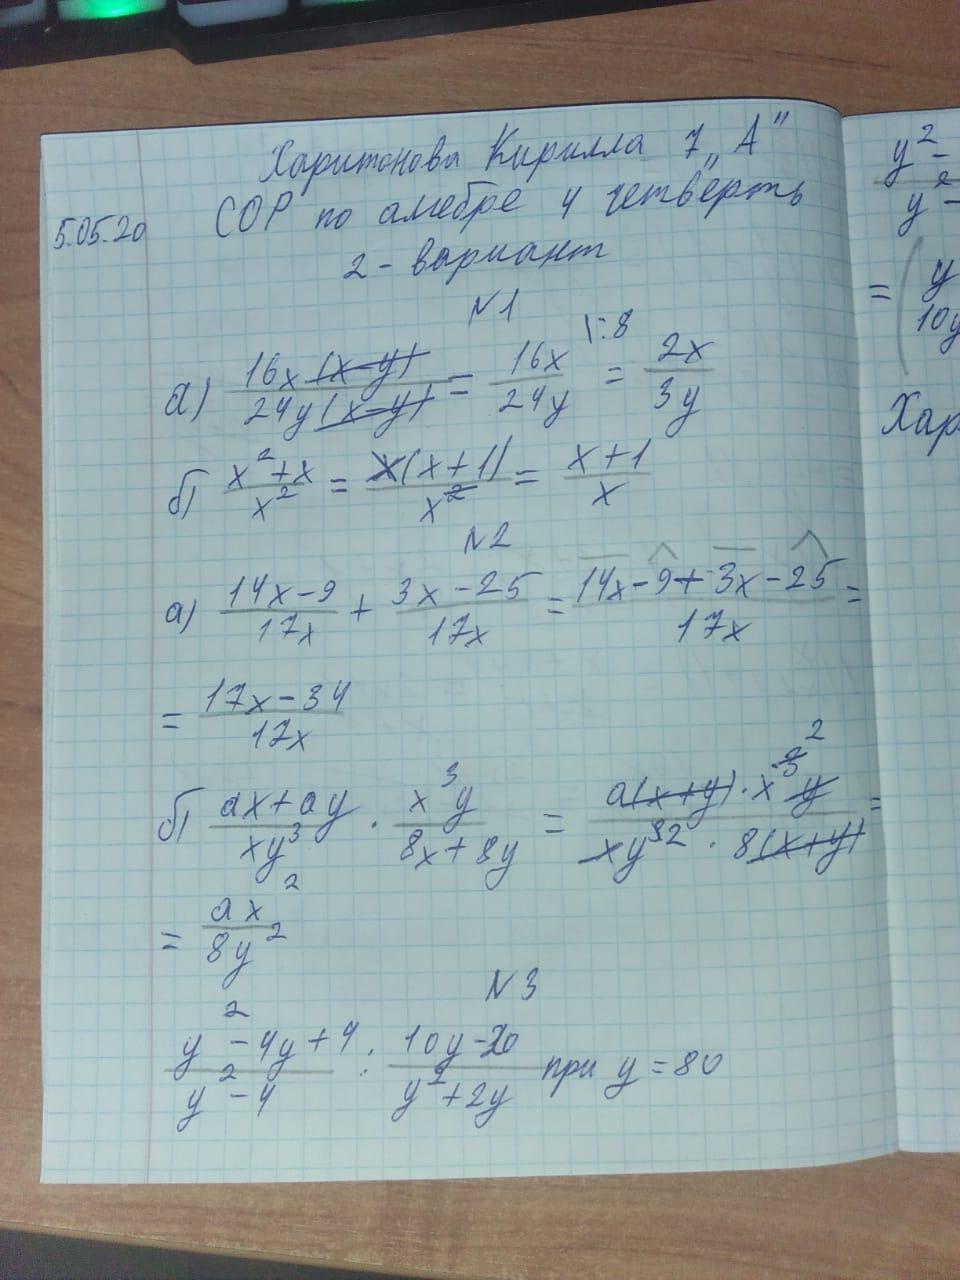 Харитонова Кирилла 7 „А"
5.05.20 СОР по алгебре 4 четверть
2 - вариант
№1
а) 16x(x-y)/24y(x-y) = 16x/24y |:8 = 2x/3y
б) x²+x/x² = x(x+1)/x² = x+1/x
№2
а) 14x-9/17x + 3x-25/17x = 14x-9+3x-25/17x =
= 17x-34/17x
б) ax+ay/xy³ · x³y/8x+8y = a(x+y)·x³² y/xy³² · 8(x+y) =
= ax²/8y²
№3
y²-4y+4/y²-4 : 10y-20/y²+2y при y=80
y²-
y²-
= ( y
10y
Хар